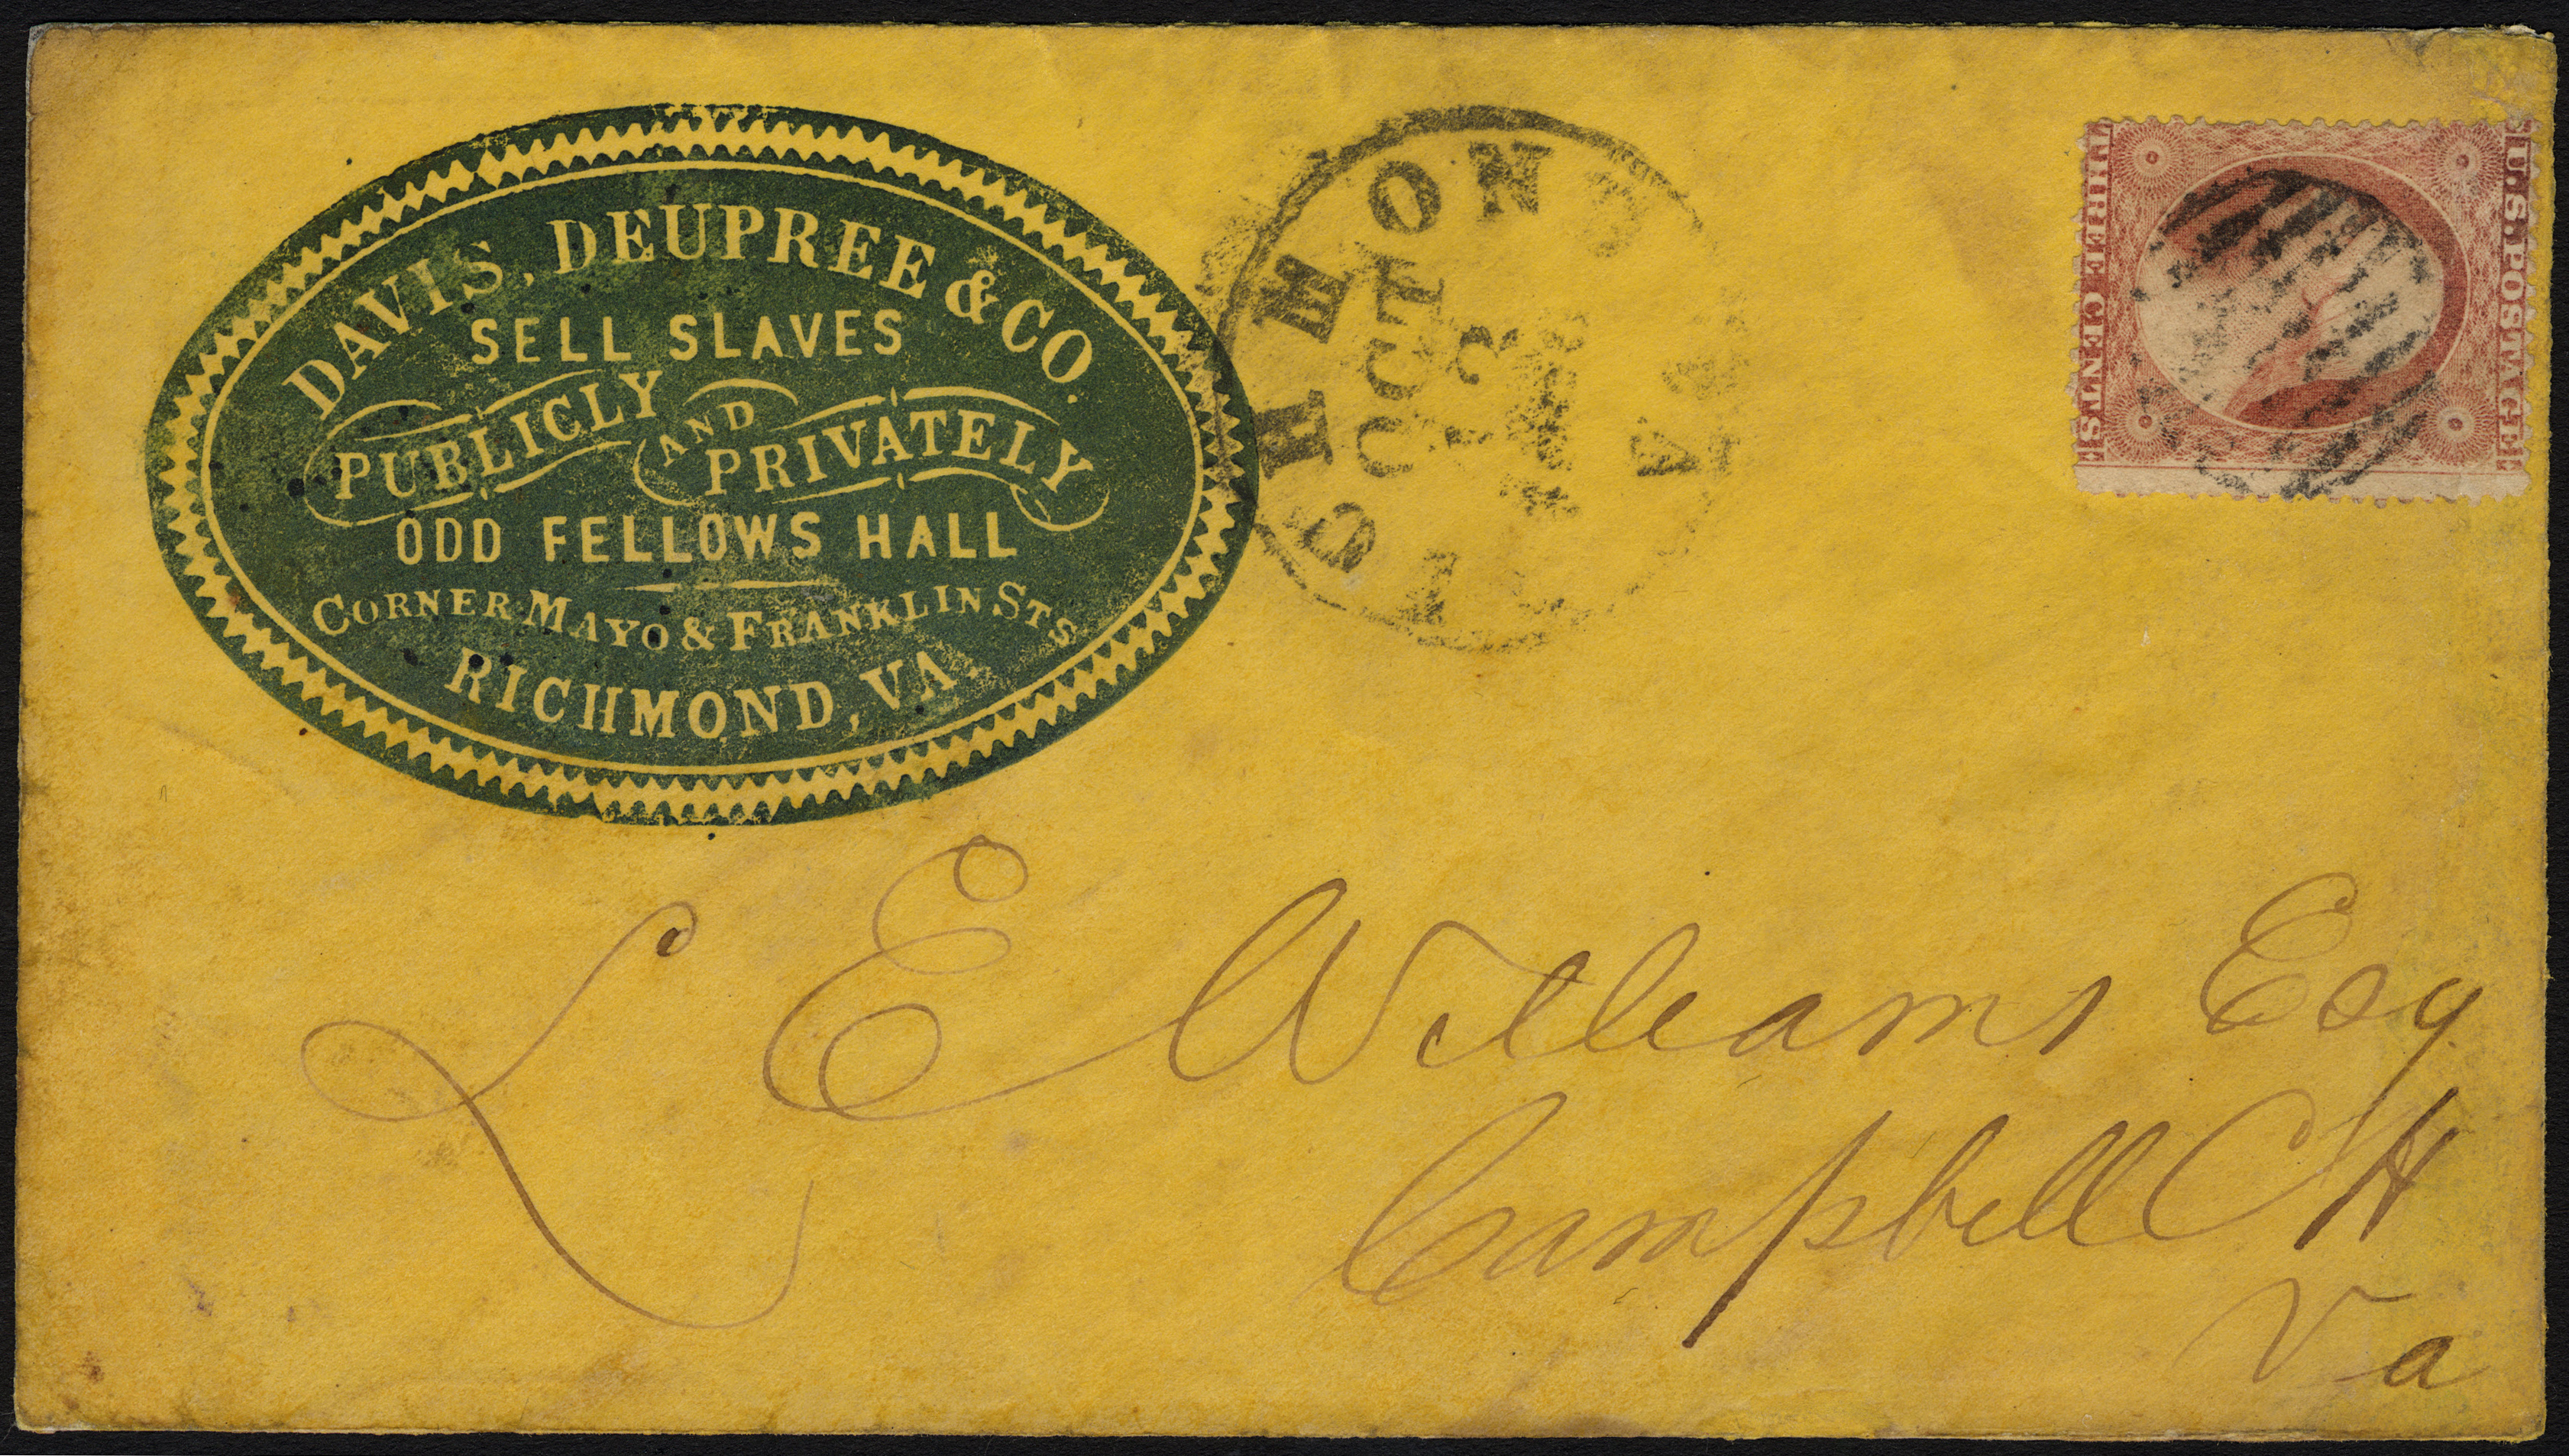 DAVIS, DEUPREE & CO.
SELL SLAVES
PUBLICLY AND PRIVATELY
ODD FELLOWS HALL
CORNER MAYO & FRANKLIN STS
RICHMOND, VA.
RICHMOND VA
OCT
U.S. POSTAGE
THREE CENTS
L E Williams Esq
Campbell CH
Va